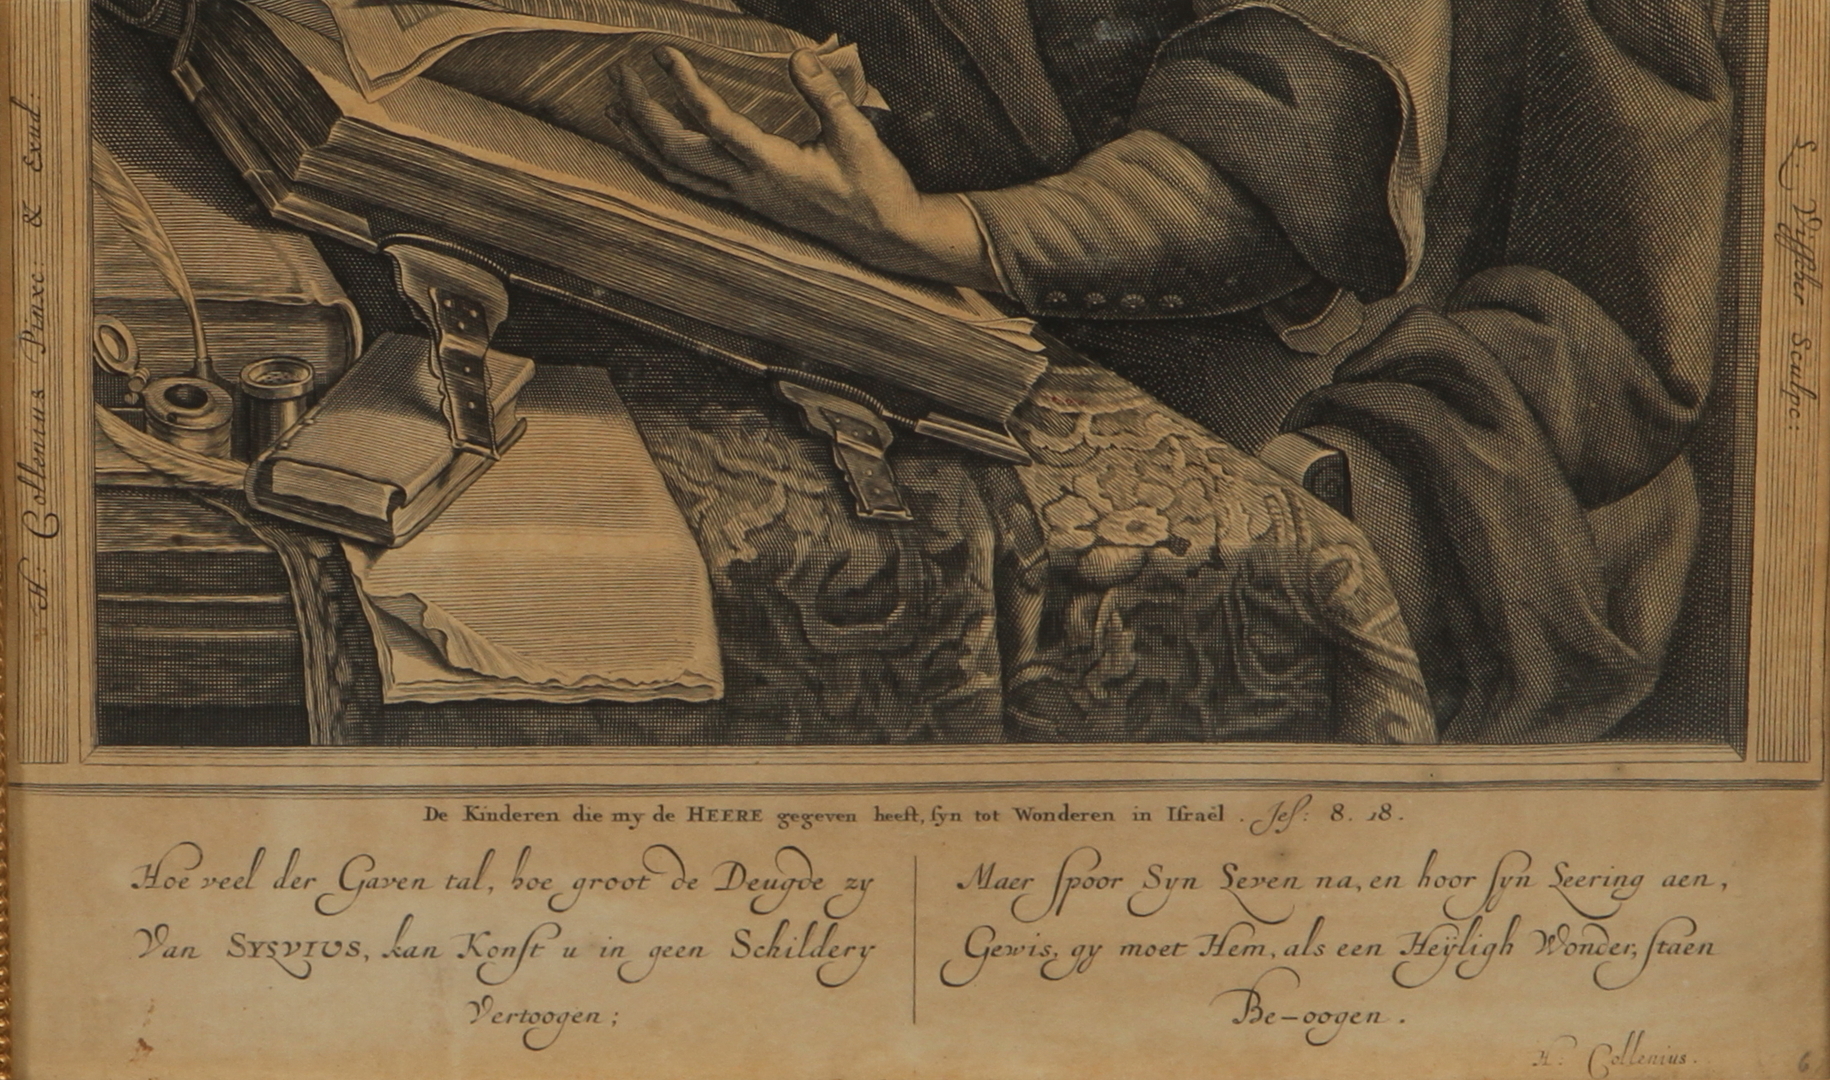 H: Collenius Pinxc: & Exud:
L. Visscher Sculpc:
De Kinderen die my de HEERE gegeven heeft, syn tot Wonderen in Israël. Jes: 8. 18.
Hoe veel der Gaven tal, hoe groot de Deugde zy
Van SYSVIUS, kan Konst u in geen Schildery
Vertoogen;
Maer spoor Syn Leven na, en hoor syn Leering aen,
Gewis, gy moet Hem, als een Heÿligh Wonder, staen
Be-oogen.
H: Collenius.
6